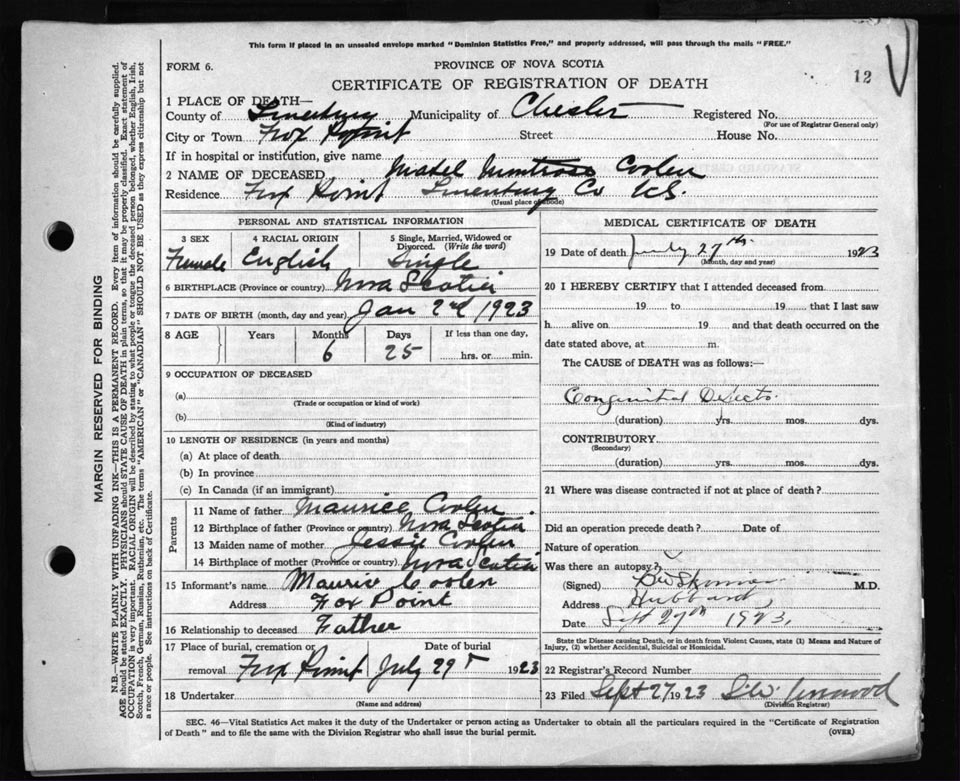 This form if placed in an unsealed envelope marked "Dominion Statistics Free," and properly addressed, will pass through the mails "FREE."
FORM 6.
PROVINCE OF NOVA SCOTIA
CERTIFICATE OF REGISTRATION OF DEATH
12
1 PLACE OF DEATH—
County of Lunenburg Municipality of Chester Registered No.
(For use of Registrar General only)
City or Town Fox Point Street House No.
If in hospital or institution, give name
2 NAME OF DECEASED Montrose Coolen
Residence Fox Point Lunenburg Co N.S.
(Usual place of abode)
PERSONAL AND STATISTICAL INFORMATION
3 SEX 4 RACIAL ORIGIN 5 Single, Married, Widowed or Divorced. (Write the word)
Female English Single
6 BIRTHPLACE (Province or country) Nova Scotia
7 DATE OF BIRTH (month, day and year) Jan 2nd 1923
8 AGE Years Months Days If less than one day,
6 25 hrs. or min.
9 OCCUPATION OF DECEASED
(a)
(Trade or occupation or kind of work)
(b)
(Kind of industry)
10 LENGTH OF RESIDENCE (in years and months)
(a) At place of death
(b) In province
(c) In Canada (if an immigrant)
Parents
11 Name of father Maurice Coolen
12 Birthplace of father (Province or country) Nova Scotia
13 Maiden name of mother Jessie Coolen
14 Birthplace of mother (Province or country) Nova Scotia
15 Informant's name Maurice Coolen
Address Fox Point
16 Relationship to deceased Father
17 Place of burial, cremation or removal Fox Point Date of burial July 29 1923
18 Undertaker
(Name and address)
MEDICAL CERTIFICATE OF DEATH
19 Date of death July 27th 1923
(Month, day and year)
20 I HEREBY CERTIFY that I attended deceased from
19 to 19 that I last saw
h alive on 19 and that death occurred on the
date stated above, at m.
The CAUSE of DEATH was as follows:—
Congenital Defects
(duration) yrs. mos. dys.
CONTRIBUTORY
(Secondary)
(duration) yrs. mos. dys.
21 Where was disease contracted if not at place of death?
Did an operation precede death? Date of
Nature of operation
Was there an autopsy?
(Signed) M.D.
Address Hubbards
Date Sept 27th 1923
State the Disease causing Death, or in death from Violent Causes, state (1) Means and Nature of Injury, (2) whether Accidental, Suicidal or Homicidal.
22 Registrar's Record Number
23 Filed Sept 27 1923
(Division Registrar)
SEC. 46—Vital Statistics Act makes it the duty of the Undertaker or person acting as Undertaker to obtain all the particulars required in the "Certificate of Registration
of Death" and to file the same with the Division Registrar who shall issue the burial permit. (OVER)
MARGIN RESERVED FOR BINDING
N.B.—WRITE PLAINLY WITH UNFADING INK—THIS IS A PERMANENT RECORD. Every item of information should be carefully supplied.
AGE should be stated EXACTLY. PHYSICIANS should STATE CAUSE OF DEATH in plain terms, so that it may be properly classified. Exact statement of
OCCUPATION is very important. RACIAL ORIGIN will be described by stating to what people or tongue the deceased person belonged, whether English, Irish,
Scotch, French, German, Russian, Ruthenian, etc. The terms "AMERICAN" or "CANADIAN" SHOULD NOT BE USED as they express citizenship but not
a race or people. See instructions on back of Certificate.